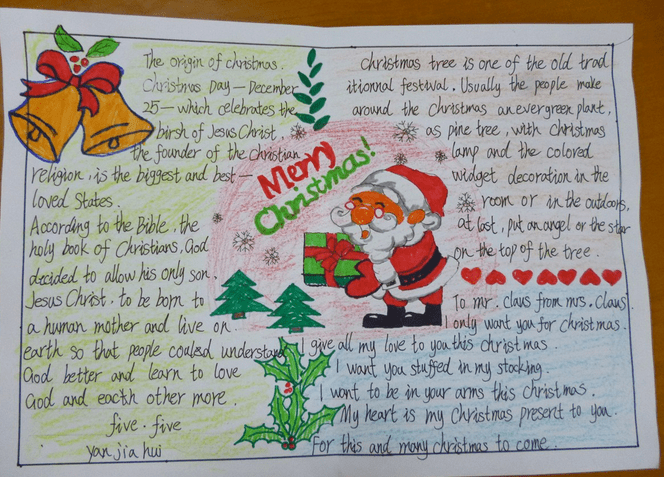 The origin of christmas.
Christmas Day — December
25 — which celebrates the
birsh of Jesus Christ,
the founder of the Christian
religion, is the biggest and best —
loved States.
According to the Bible, the
holy book of Christians, God
decided to allow his only son,
Jesus Christ, to be born to
a human mother and live on
earth so that people could understand
God better and learn to love
God and eacth other more.
five. five
yan jia hui
Merry
Christmas!
christmas tree is one of the old trad
itionnal festival. Usually the people make
around the Christmas an evergreen plant,
as pine tree, with christmas
lamp and the colored
widget decoration in the
room or in the outdoors,
at last, put an angel or the star
on the top of the tree.
To mr. claus from mrs. claus.
I only want you for christmas.
I give all my love to you this christmas.
I want you stuffed in my stocking.
I want to be in your arms this christmas.
My heart is my Christmas present to you.
for this and many christmas to come.